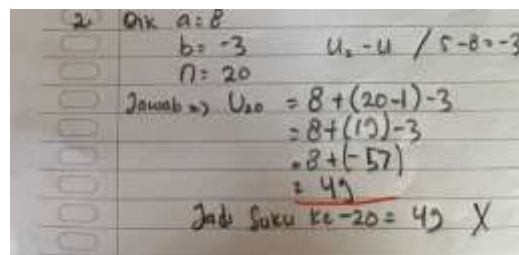 2. Dik a = 8
b = -3 U₂ - U / 5-8 = -3
n = 20
Jawab => U₂₀ = 8 + (20-1) -3
= 8 + (19) -3
= 8 + (-57)
= 49
Jadi Suku ke-20 = 49 X